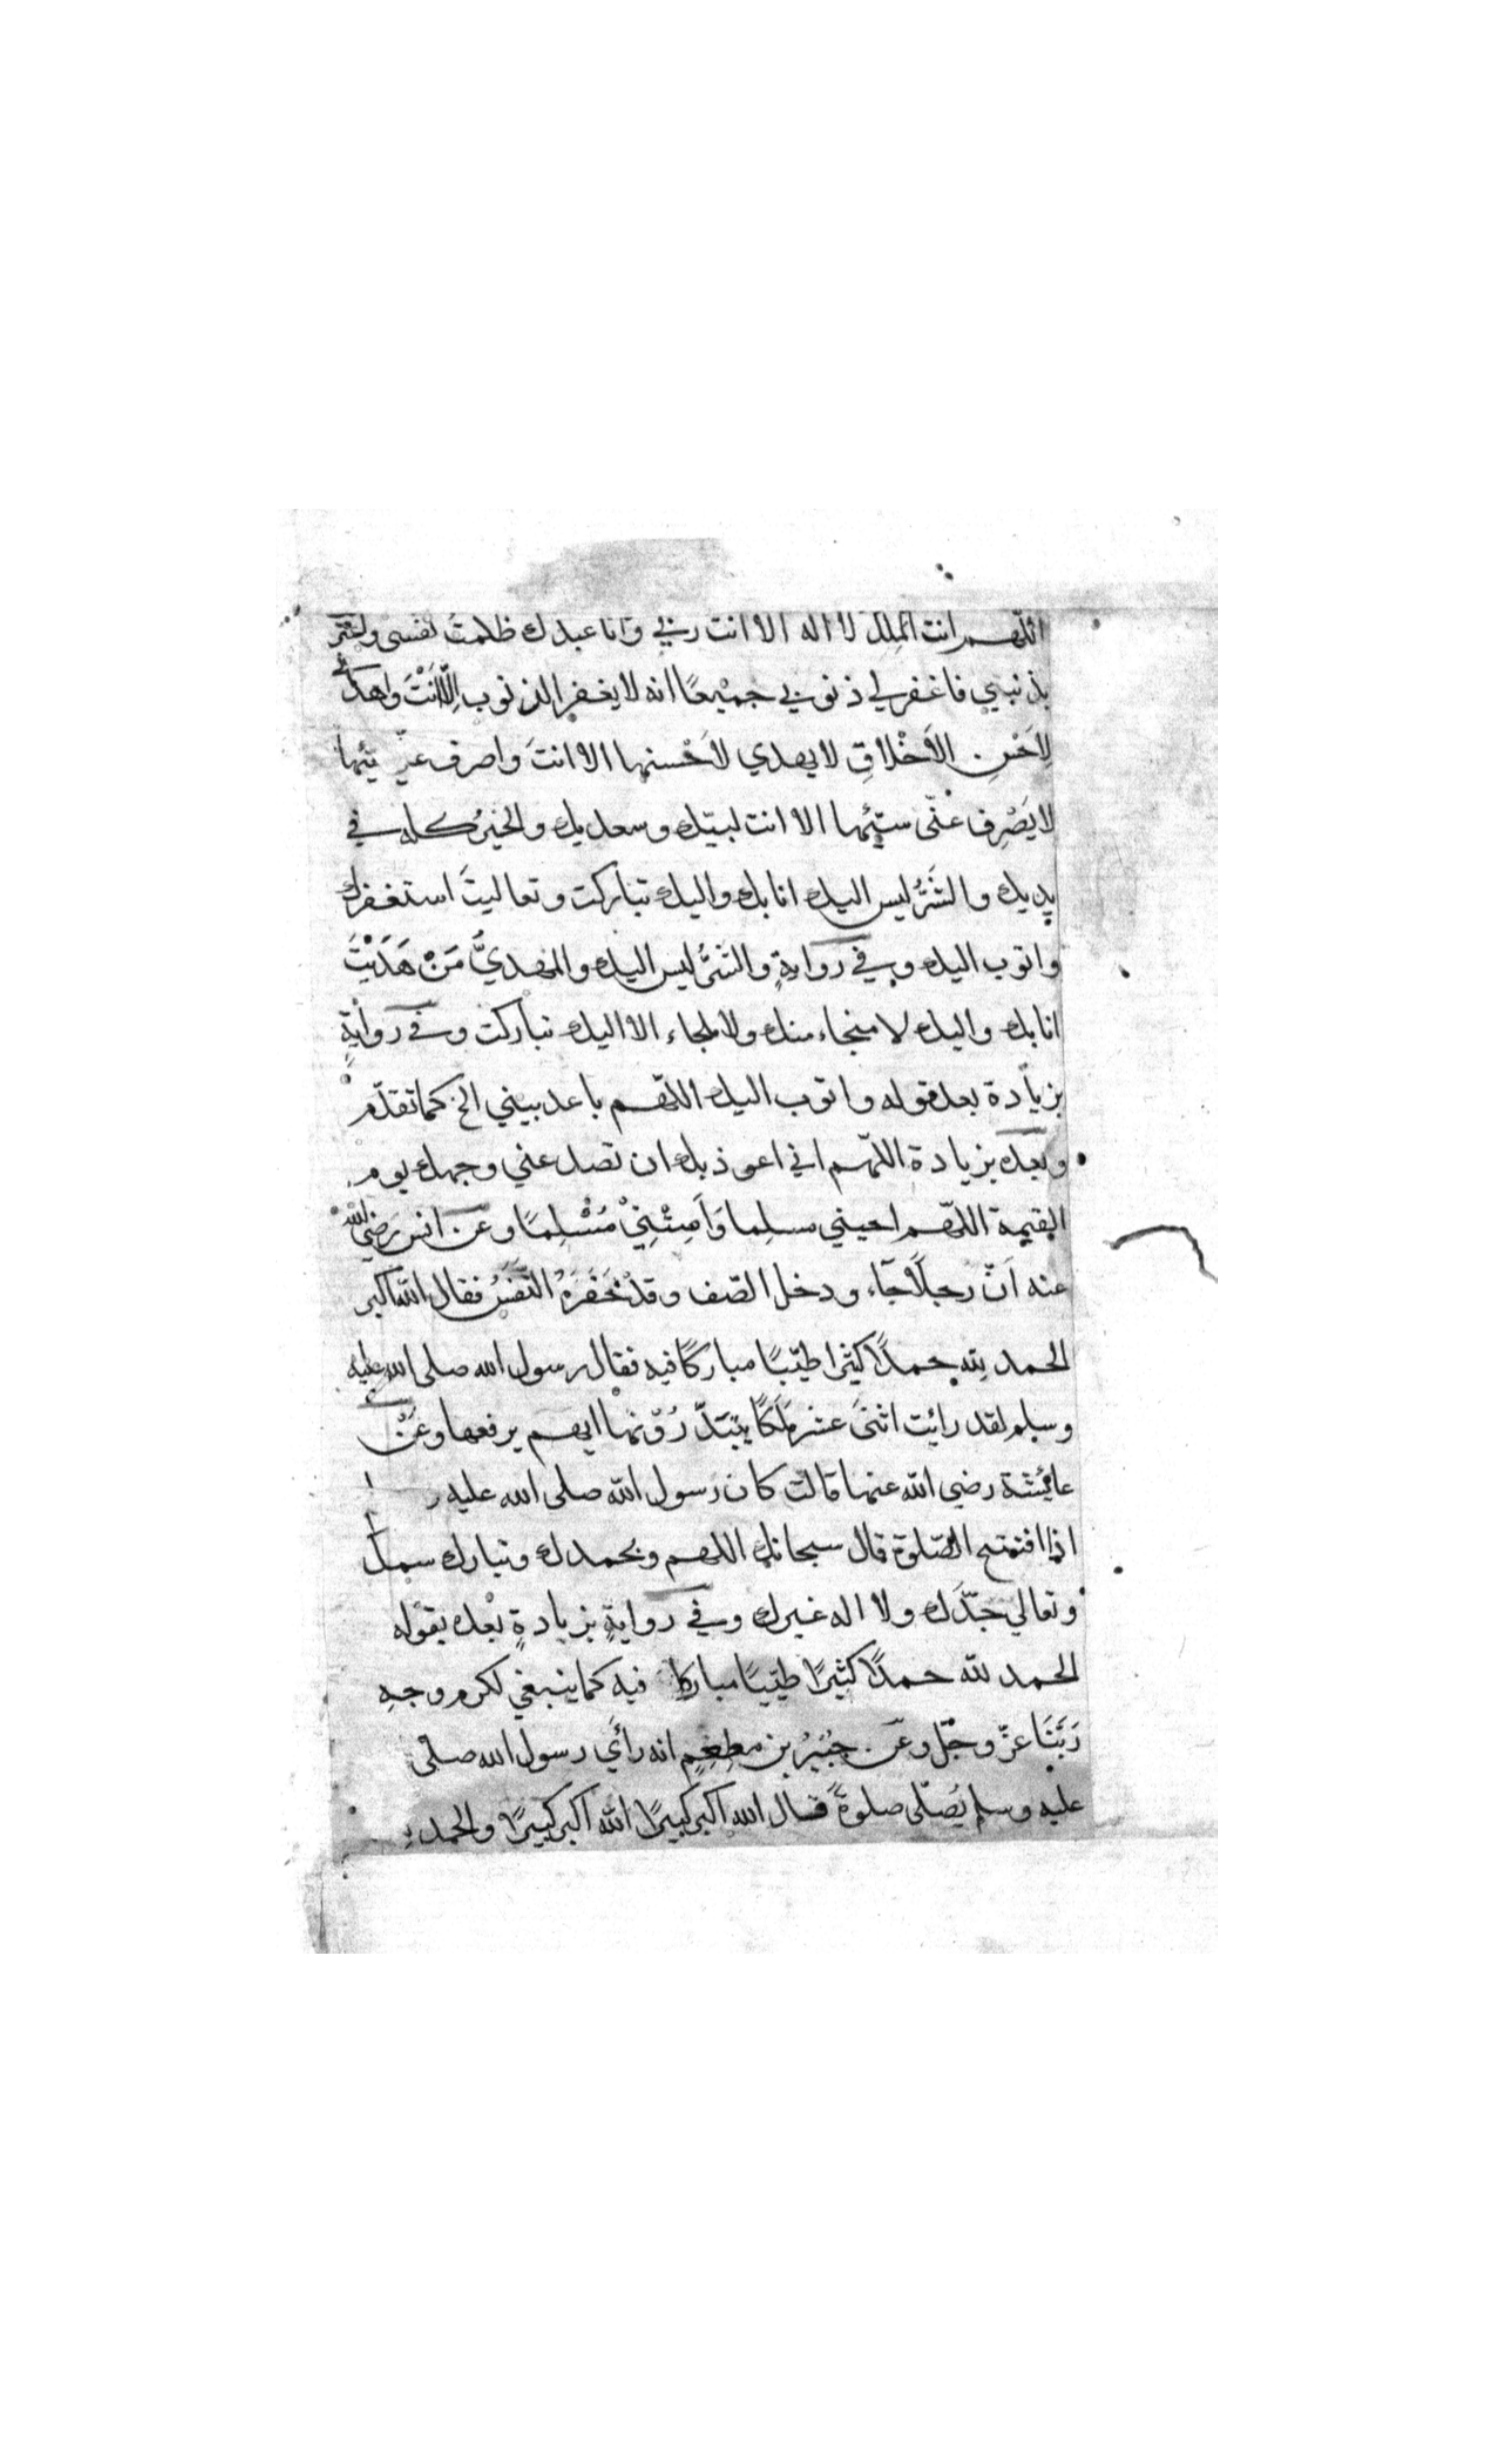 اللّهم انت الملك لا اله الا انت ربي وانا عبدك ظلمت نفسى
بذنبي فاغفر لي ذنوبي جميعًا انه لا يغفر الذنوب اِلّا اَنْتَ واهدني
لِاَحْسنِ الاَخْلاقِ لا يهدي لاَحْسنها الا انتَ واصرف عنّي سيّئها
لا يَصْرِف عنّى سيّئها الا انت لبيّك وسعديك والخيرُ كله في
يديك والشَرُّ ليس اليك انا بك واليك تباركت وتعاليتَ استغفرك
واتوب اليك وفي روايةٍ والشَرُّ ليس اليك والمهديُّ مَنْ هَدَيْتَ
انا بك واليك لا منجاء منك ولا ملجاء الا اليك تباركت وفي روايةٍ
بزيادة بعد قوله واتوب اليك اللّهم باعد بيني الخ كما تقدّم
وبعده بزيادة اللّهم اني اعوذ بك ان تصد عني وجهك يوم
القيمة اللّهم احيني مسلِما وَاَمِتْنِيْ مُسْلِمًا وعن انس رَضي الله
عنه اَنّ رجلًا جآء ودخل الصّف وقدْ حَفَزَهُ النَّفَسُ فقال الله اكبر
الحمد لِله حمدًا كثيرا طيّبًا مباركًا فيه فقال رسول الله صلى الله عليه
وسلم لقد رائيت اثنىَ عشر مَلَكًا يَبْتَدِرُوْنها ايهم يرفعها وعَنْ
عائِشة رضي الله عنها قالت كان رسول الله صلى الله عليه
اذا افتتح الصّلوة قال سبحانك اللهم وبحمدك وتبارك سمك
وتعالي جدّك ولا اله غيرك وفي روايةٍ بزيادةٍ بعده بقوله
الحمد لله حمدًا كثيرًا طيّبًا مباركا فيه كما ينبغي لكرم وجهِ
رَبَّنَا عزّ وجّل وعن جُبَيْرُ بن مطعِمٍ انه رأَي رسول الله صلى
عليه وسلم يُصَلّى صلوةً قال الله اكبر كبيرًا الله اكبر كبيرًا والحمد